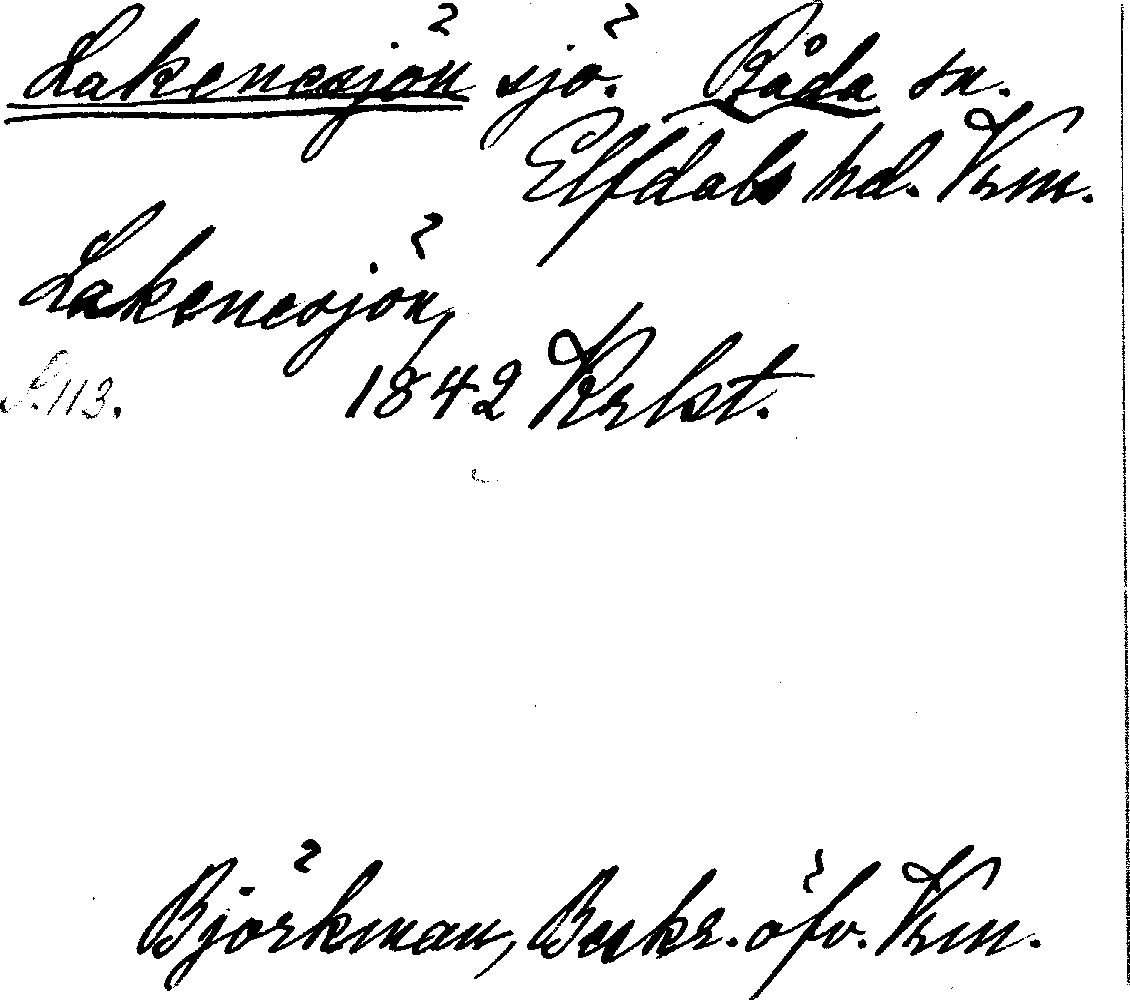 Lakenesjön sjö. Råda sn.
Elfdals hd. Vrm.
Lakenesjön,
S. 113. 1842 Krlst.
Björkman, Beskr. öfv. Vrm.